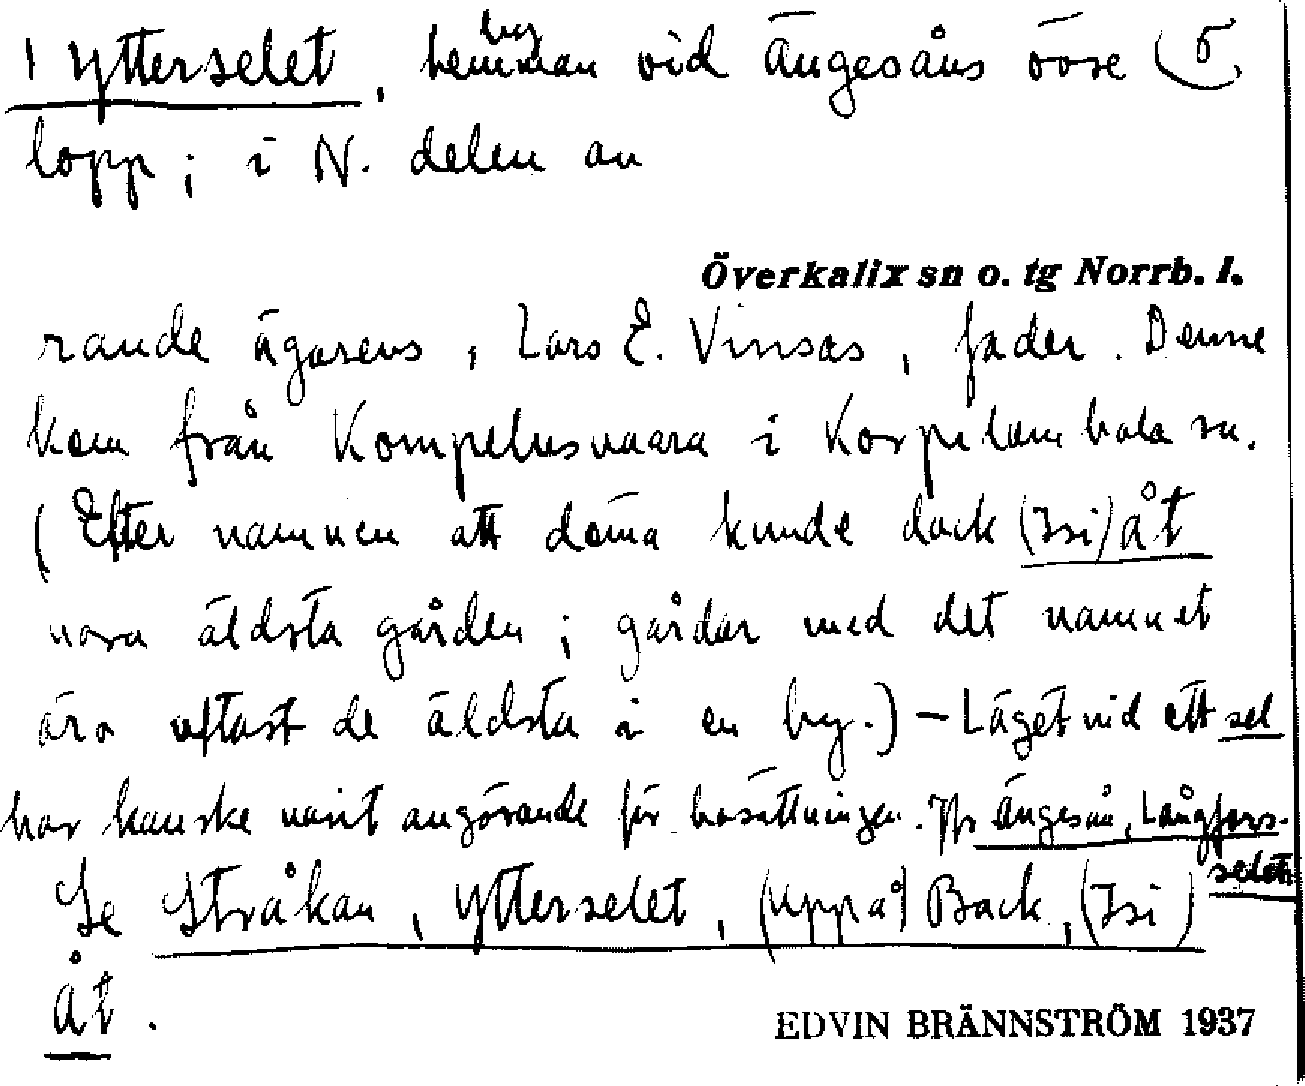 1 Ytterselet, hemman vid Ängesåns övre
by
lopp; i N. delen av
Överkalix sn o. tg Norrb. l.
rande ägarens, Lars E. Vinsas, fader. Denne
kom från Kompelusvaara i Korpilombolo sn.
(Efter namnen att döma kunde dock (Isi) åt
vara äldsta gården; gårdar med det namnet
äro oftast de äldsta i en by.) – Läget vid ett sel
har kanske varit avgörande för bosättningen. Jfr Ängesån, Långfors-
selet.
Se Stråkan, Ytterselet, (Uppå) Back, (Isi)
åt.
EDVIN BRÄNNSTRÖM 1937